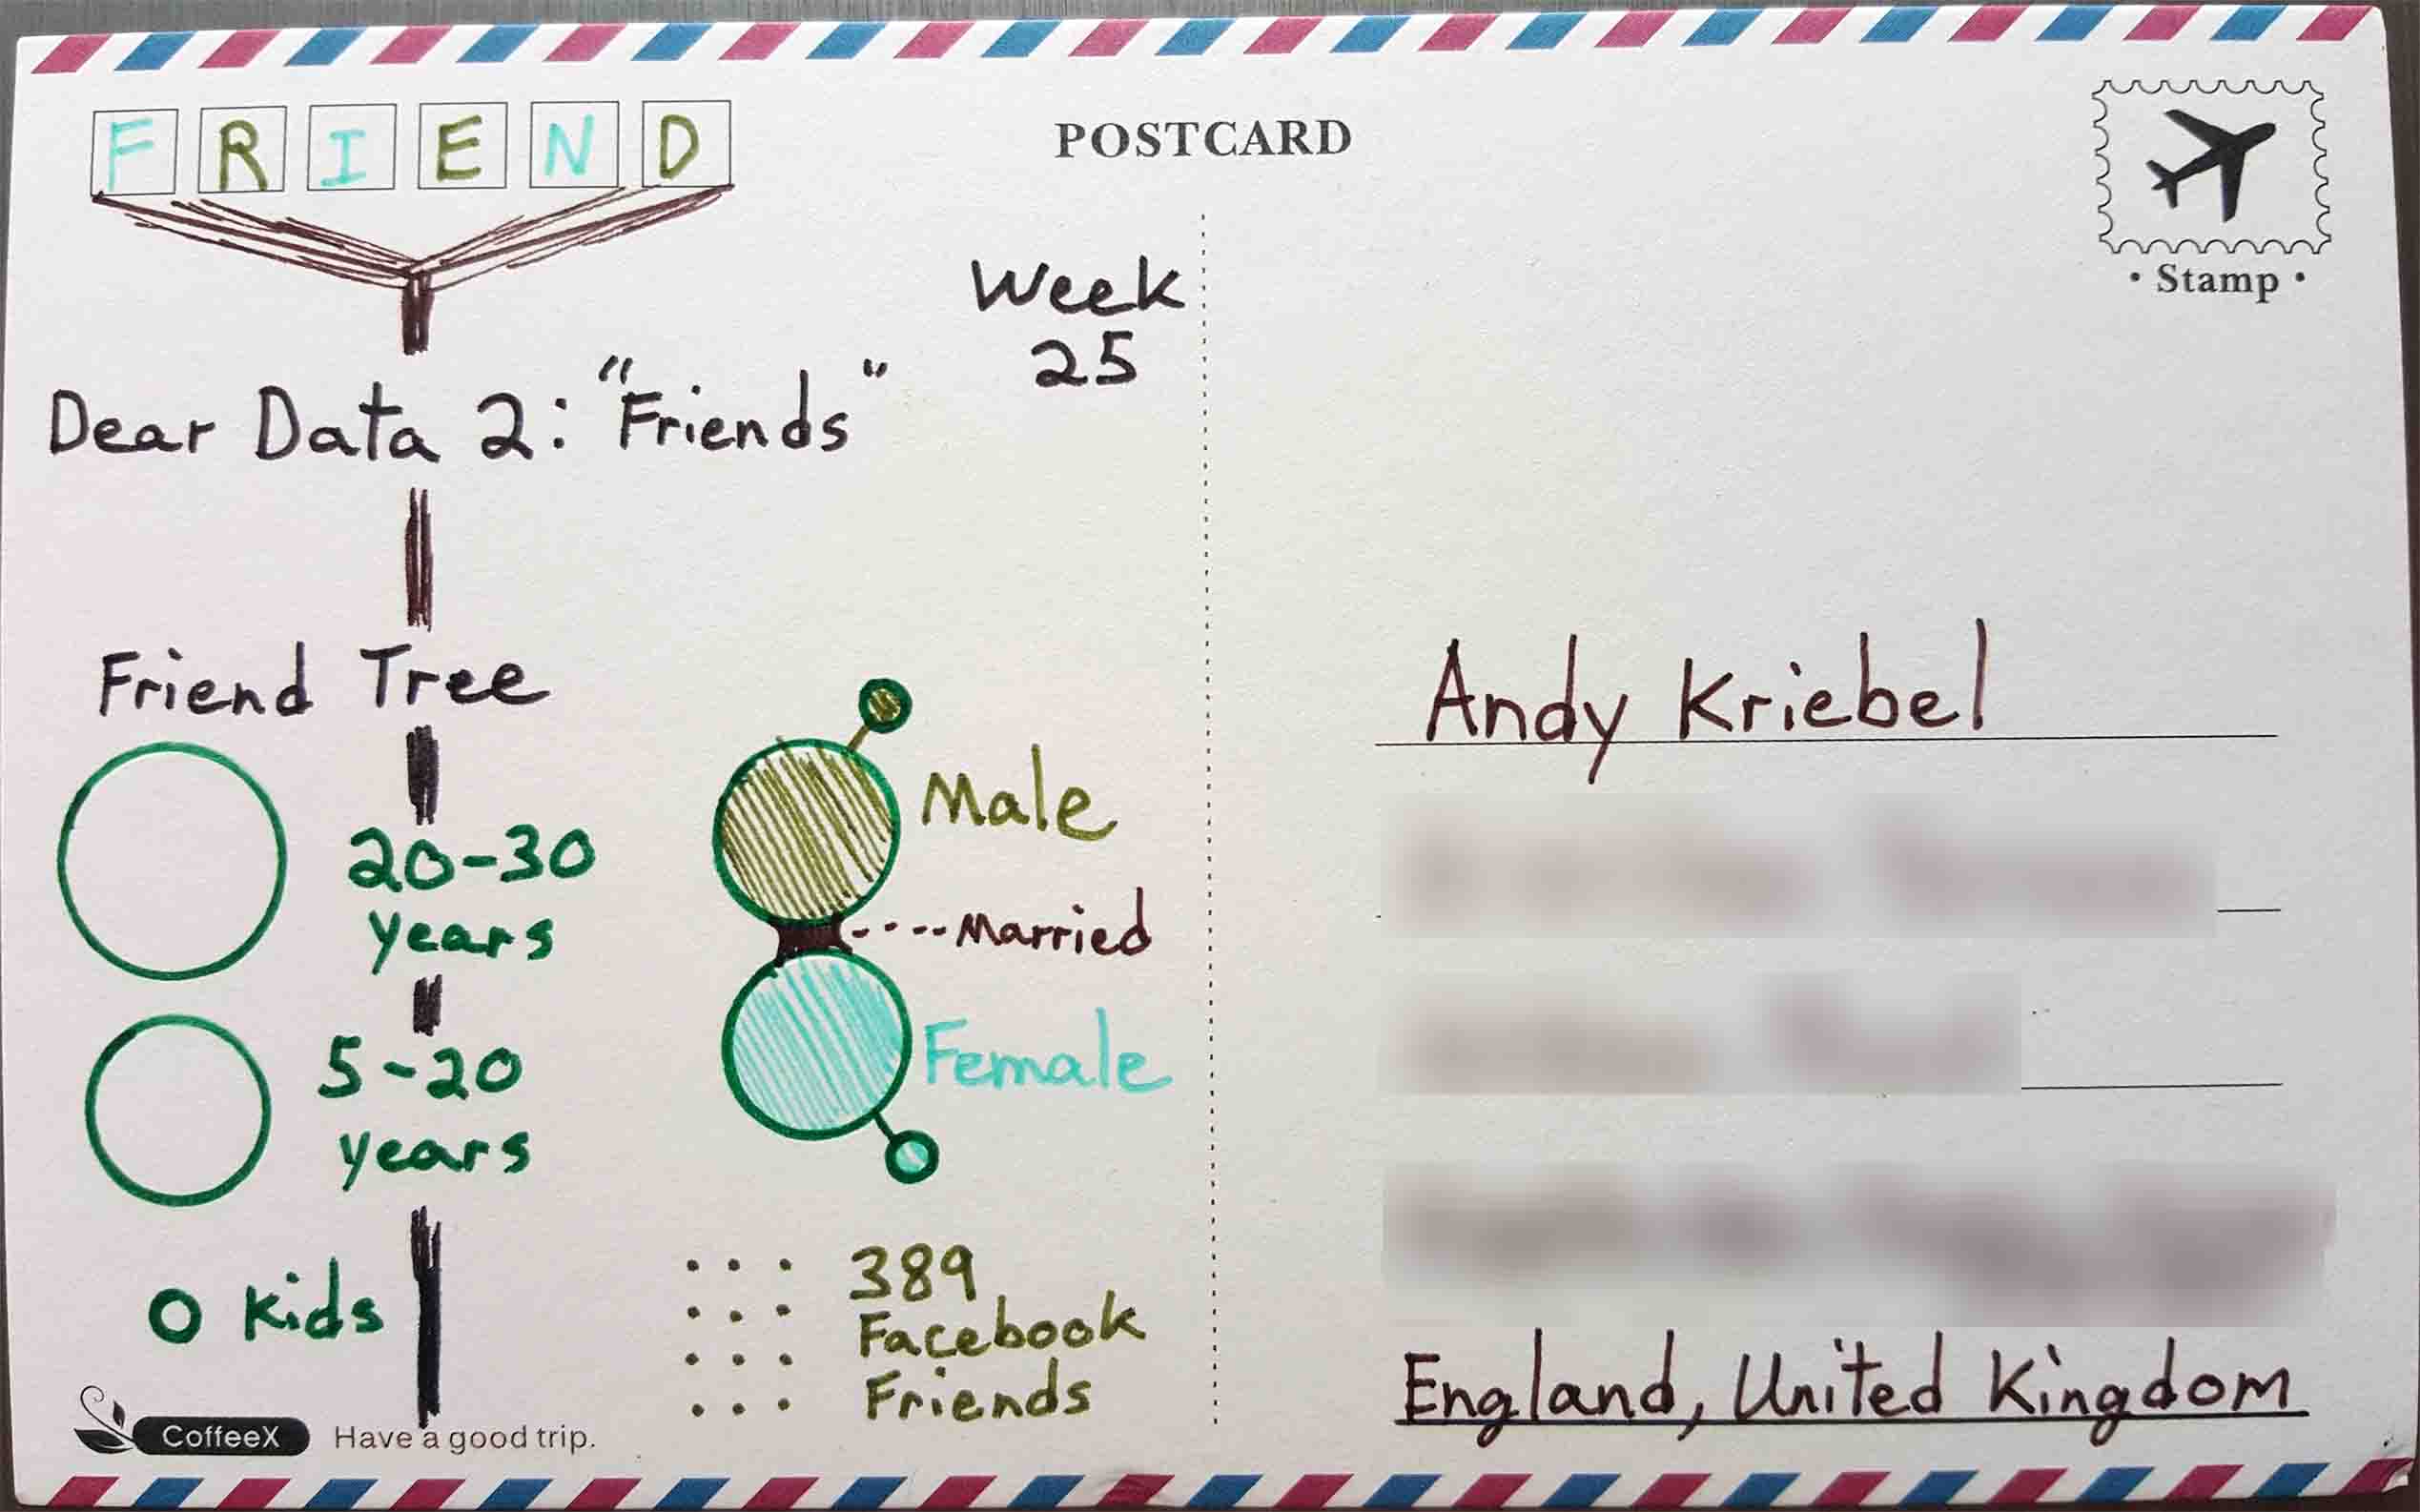 FRIEND
POSTCARD
• Stamp •
Week
25
Dear Data 2: "Friends"
Friend Tree
20-30
years
5-20
years
O Kids
Male
Married
Female
389
Facebook
Friends
CoffeeX Have a good trip.
Andy Kriebel
England, United Kingdom